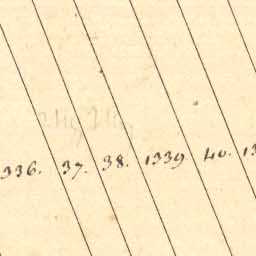 336. 37. 38. 1339 40. 13